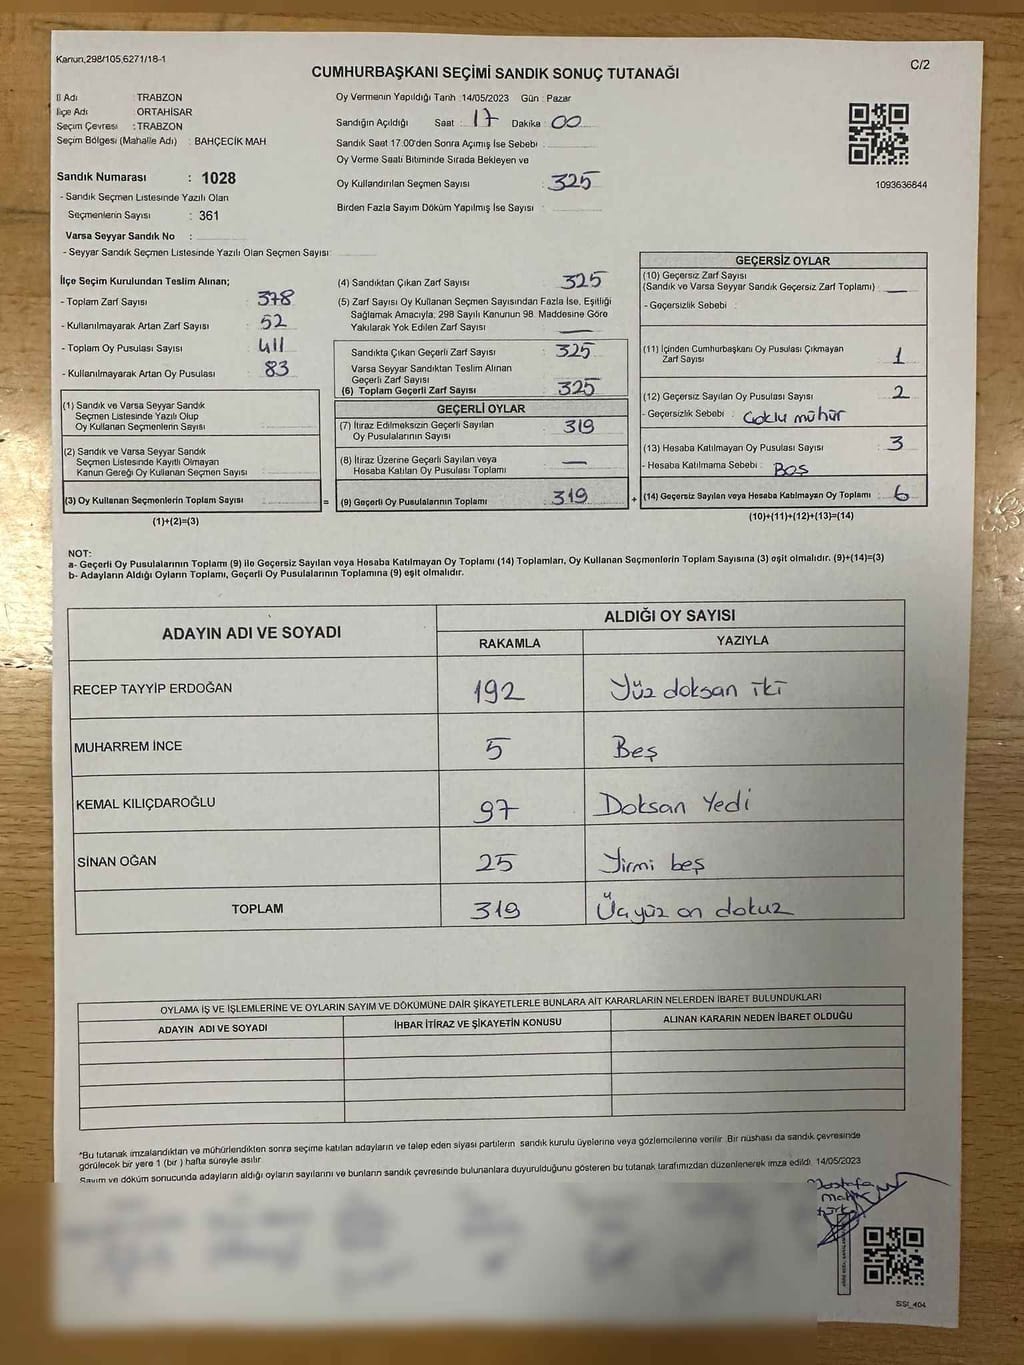 Kanun,298/105,6271/18-1
C/2
CUMHURBAŞKANI SEÇİMİ SANDIK SONUÇ TUTANAĞI
İl Adı : TRABZON
İlçe Adı : ORTAHİSAR
Seçim Çevresi : TRABZON
Seçim Bölgesi (Mahalle Adı) : BAHÇECİK MAH
Sandık Numarası : 1028
- Sandık Seçmen Listesinde Yazılı Olan
Seçmenlerin Sayısı : 361
Varsa Seyyar Sandık No :
- Seyyar Sandık Seçmen Listesinde Yazılı Olan Seçmen Sayısı:
Oy Vermenin Yapıldığı Tarih :14/05/2023 Gün : Pazar
Sandığın Açıldığı Saat : 17 Dakika : 00
Sandık Saat 17:00'den Sonra Açımış İse Sebebi :
Oy Verme Saati Bitiminde Sırada Bekleyen ve
Oy Kullandırılan Seçmen Sayısı : 325
Birden Fazla Sayım Döküm Yapılmış İse Sayısı :
1093636844
İlçe Seçim Kurulundan Teslim Alınan;
- Toplam Zarf Sayısı : 378
- Kullanılmayarak Artan Zarf Sayısı : 52
- Toplam Oy Pusulası Sayısı : 411
- Kullanılmayarak Artan Oy Pusulası : 83
(1) Sandık ve Varsa Seyyar Sandık
Seçmen Listesinde Yazılı Olup
Oy Kullanan Seçmenlerin Sayısı :
(2) Sandık ve Varsa Seyyar Sandık
Seçmen Listesinde Kayıtlı Olmayan
Kanun Gereği Oy Kullanan Seçmen Sayısı :
(3) Oy Kullanan Seçmenlerin Toplam Sayısı :
(1)+(2)=(3)
(4) Sandıktan Çıkan Zarf Sayısı : 325
(5) Zarf Sayısı Oy Kullanan Seçmen Sayısından Fazla İse, Eşitliği
Sağlamak Amacıyla; 298 Sayılı Kanunun 98. Maddesine Göre
Yakılarak Yok Edilen Zarf Sayısı : —
Sandıkta Çıkan Geçerli Zarf Sayısı : 325
Varsa Seyyar Sandıktan Teslim Alınan
Geçerli Zarf Sayısı :
(6) Toplam Geçerli Zarf Sayısı : 325
GEÇERLİ OYLAR
(7) İtiraz Edilmeksizin Geçerli Sayılan
Oy Pusulalarının Sayısı : 319
(8) İtiraz Üzerine Geçerli Sayılan veya
Hesaba Katılan Oy Pusulası Toplamı : —
= (9) Geçerli Oy Pusulalarının Toplamı : 319
GEÇERSİZ OYLAR
(10) Geçersiz Zarf Sayısı
(Sandık ve Varsa Seyyar Sandık Geçersiz Zarf Toplamı) : —
- Geçersizlik Sebebi :
(11) İçinden Cumhurbaşkanı Oy Pusulası Çıkmayan
Zarf Sayısı : 1
(12) Geçersiz Sayılan Oy Pusulası Sayısı : 2
- Geçersizlik Sebebi : Çoklu mühür
(13) Hesaba Katılmayan Oy Pusulası Sayısı : 3
- Hesaba Katılmama Sebebi : Boş
+ (14) Geçersiz Sayılan veya Hesaba Katılmayan Oy Toplamı : 6
(10)+(11)+(12)+(13)=(14)
NOT:
a- Geçerli Oy Pusulalarının Toplamı (9) ile Geçersiz Sayılan veya Hesaba Katılmayan Oy Toplamı (14) Toplamları, Oy Kullanan Seçmenlerin Toplam Sayısına (3) eşit olmalıdır. (9)+(14)=(3)
b- Adayların Aldığı Oyların Toplamı, Geçerli Oy Pusulalarının Toplamına (9) eşit olmalıdır.
ADAYIN ADI VE SOYADI ALDIĞI OY SAYISI
RAKAMLA YAZIYLA
RECEP TAYYİP ERDOĞAN 192 Yüz doksan iki
MUHARREM İNCE 5 Beş
KEMAL KILIÇDAROĞLU 97 Doksan Yedi
SİNAN OĞAN 25 Yirmi beş
TOPLAM 319 Üçyüz on dokuz
OYLAMA İŞ VE İŞLEMLERİNE VE OYLARIN SAYIM VE DÖKÜMÜNE DAİR ŞİKAYETLERLE BUNLARA AİT KARARLARIN NELERDEN İBARET BULUNDUKLARI
ADAYIN ADI VE SOYADI İHBAR İTİRAZ VE ŞİKAYETİN KONUSU ALINAN KARARIN NEDEN İBARET OLDUĞU
*Bu tutanak imzalandıktan ve mühürlendikten sonra seçime katılan adayların ve talep eden siyasi partilerin sandık kurulu üyelerine veya gözlemcilerine verilir. Bir nüshası da sandık çevresinde
görülecek bir yere 1 (bir) hafta süreyle asılır.
Sayım ve döküm sonucunda adayların aldığı oyların sayılarını ve bunların sandık çevresinde bulunanlara duyurulduğunu gösteren bu tutanak tarafımızdan düzenlenerek imza edildi. 14/05/2023
SSI_404